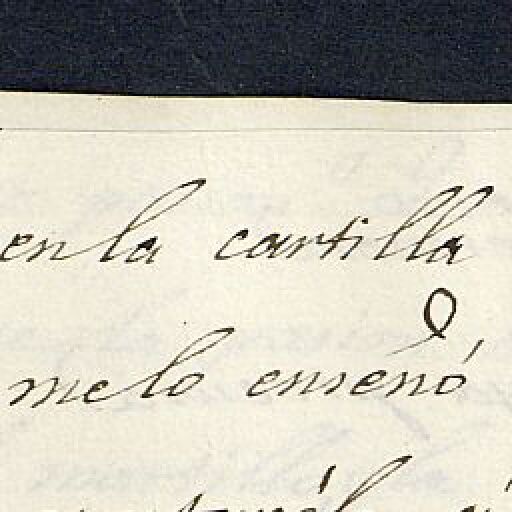 en la cartilla
me lo enseñó